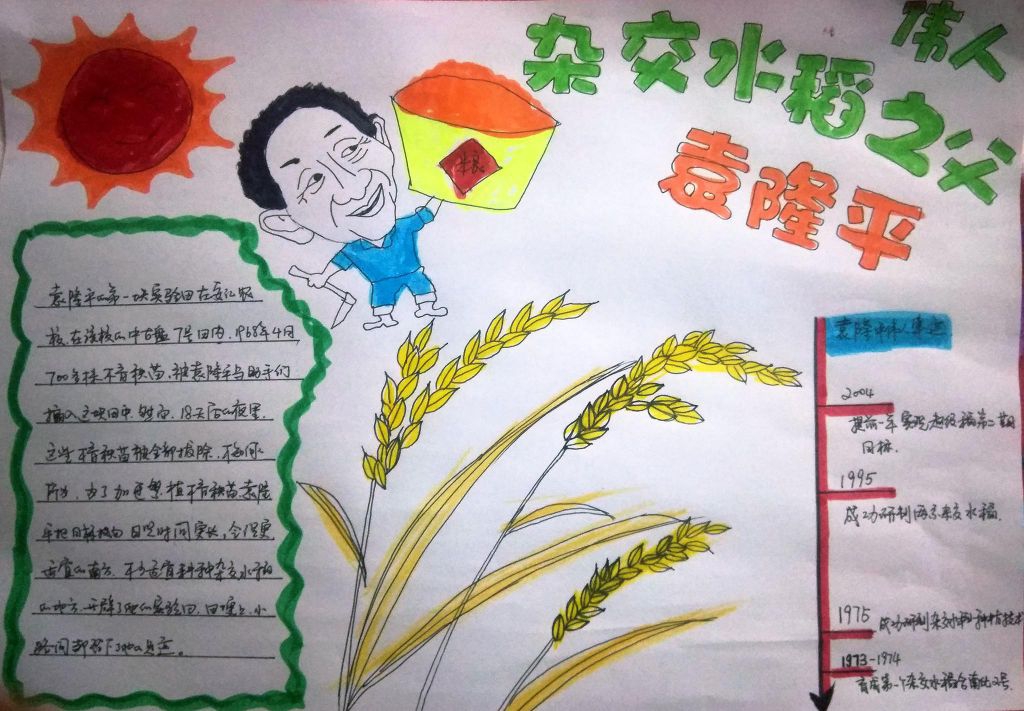 伟人
杂交水稻之父
袁隆平
粮
袁隆平的第一块实验田在安江农
校,在该校的中古盘7号田内,1968年4月
700多株不育秧苗,被袁隆平与助手们
插入这块田中,然而,18天后的夜里,
这些不育秧苗被全部拔除,不知何
所为,为了加速繁殖不育秧苗袁隆
平把目标投向日照时间更长,令得更
适宜的南方,不少适宜种种杂交水稻
的地方,开辟了他的实验田,田埂上,小
路间都留下了他的足迹。
袁隆平伟人事迹
2004
提前一年实现超级稻第二期
目标.
1995
成功研制两系杂交水稻.
1975
成功研制杂交水稻种植技术
1973-1974
育成第一个杂交水稻南优2号.